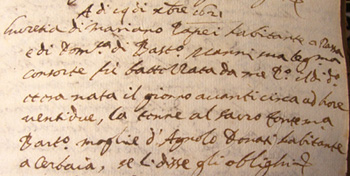 A di 29 di xbre 1621
Lucretia di Mariano Papei habitante a
e di Dom.ca di Basto Nanni sua leg.ma
consorte fù battezzata da me
et era nata il giorno avanti circa ad hore
ventidue, la tenne al sacro fonte
Barto. moglie d'Agnolo Donati habitante
a Cerbaia, se li disse gli oblighi